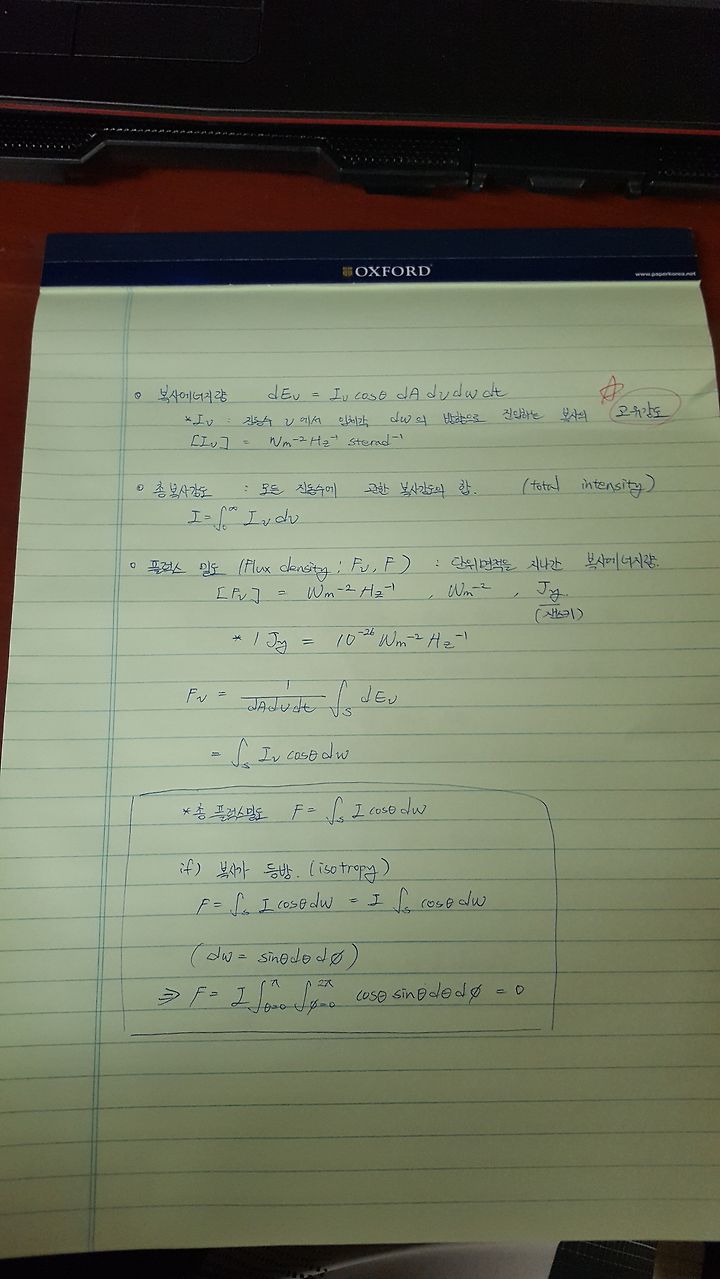 OXFORD
www.paperkorea.net
복사에너지량 dEν = Iν cosθ dA dν dw dt
*Iν : 진동수 ν에서 입체각 dw의 방향으로 진입하는 복사의 고유강도
[Iν] = Wm⁻² Hz⁻¹ sterad⁻¹
총복사강도 : 모든 진동수에 관한 복사강도의 합. (total intensity)
I = ∫₀^∞ Iν dν
플럭스 밀도 (Flux density ; Fν, F) : 단위면적을 지나간 복사에너지량.
[Fν] = Wm⁻² Hz⁻¹ , Wm⁻² , Jy.
(잰스키)
* 1 Jy = 10⁻²⁶ Wm⁻² Hz⁻¹
Fν = 1/(dAdνdt) ∫s dEν
= ∫s Iν cosθ dw
*총 플럭스밀도 F = ∫s I cosθ dw
if) 복사가 등방. (isotropy)
F = ∫s I cosθ dw = I ∫s cosθ dw
(dw = sinθ dθ dφ)
⇒ F = I ∫θ=0^π ∫φ=0^2π cosθ sinθ dθ dφ = 0